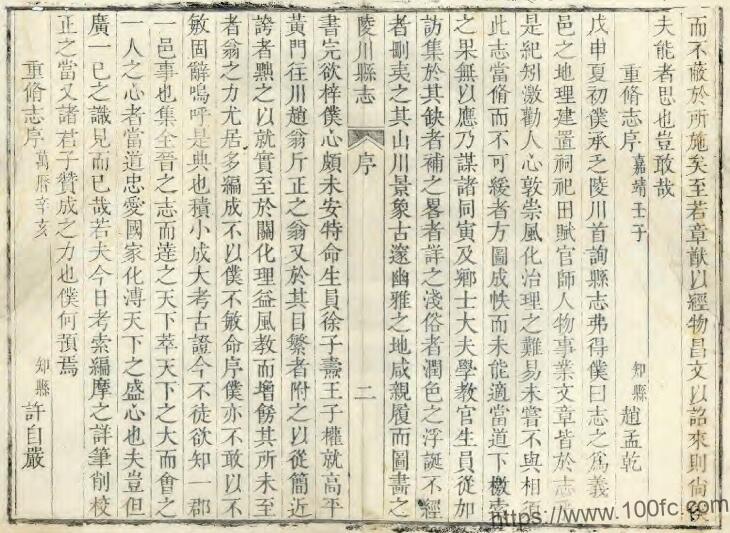 而不蔽於所施矣至若章猷以經物昌文以詔來則尙俟
夫能者思也豈敢哉
重脩志序 嘉靖壬子 知縣 趙孟乾
戊申夏初僕承乏陵川首詢縣志弗得僕曰志之爲義
邑之地理建置祠祀田賦官師人物事業文章皆於志
是紀矧激勸人心敦崇風化治理之難易未甞不與相須
此志當脩而不可緩者方圖成帙而未能適當道下檄
之果無以應乃謀諸同寅及鄉士大夫學教官生員從加
訪集於其缺者補之畧者詳之淺俗者潤色之浮誕不經
者刪夷之其山川景象古邃幽雅之地咸親履而圖畵之
陵川縣志 序 二
書完欲梓僕心頗未安特命生員徐子壽王子權就高平
黃門往川趙翁斤正之翁又於其目繁者附之以從簡近
誇者㸃之以就實至於關化理益風教而增飾其所未至
者翁之力尤居多編成不以僕不敏命序僕亦不敢以不
敏固辭嗚呼是典也積小成大考古證今不徒欲知一郡
一邑事也集全晉之志而達之天下萃天下之大而會之
一人之心者當道忠愛國家化溥天下之盛心也夫豈但
廣一己之識見而已哉若夫今日考索編摩之詳筆削校
正之當又諸君子贊成之力也僕何預焉
重脩志序 萬曆辛亥 知縣 許自嚴
https://www.100fc.com